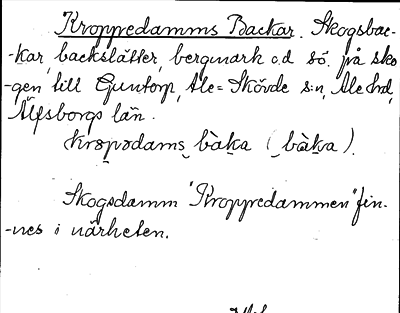 Kroppedamms Backar. Skogsbac-
-kar, backslätter, bergmark o.d. sö. på sko-
-gen till Gunntorp, Ale=Skövde s:n, Ale hd,
Älfsborgs län.
krɔpədams bàka (bàka).
Skogsdamm "Kroppedammen" fin-
-nes i närheten.